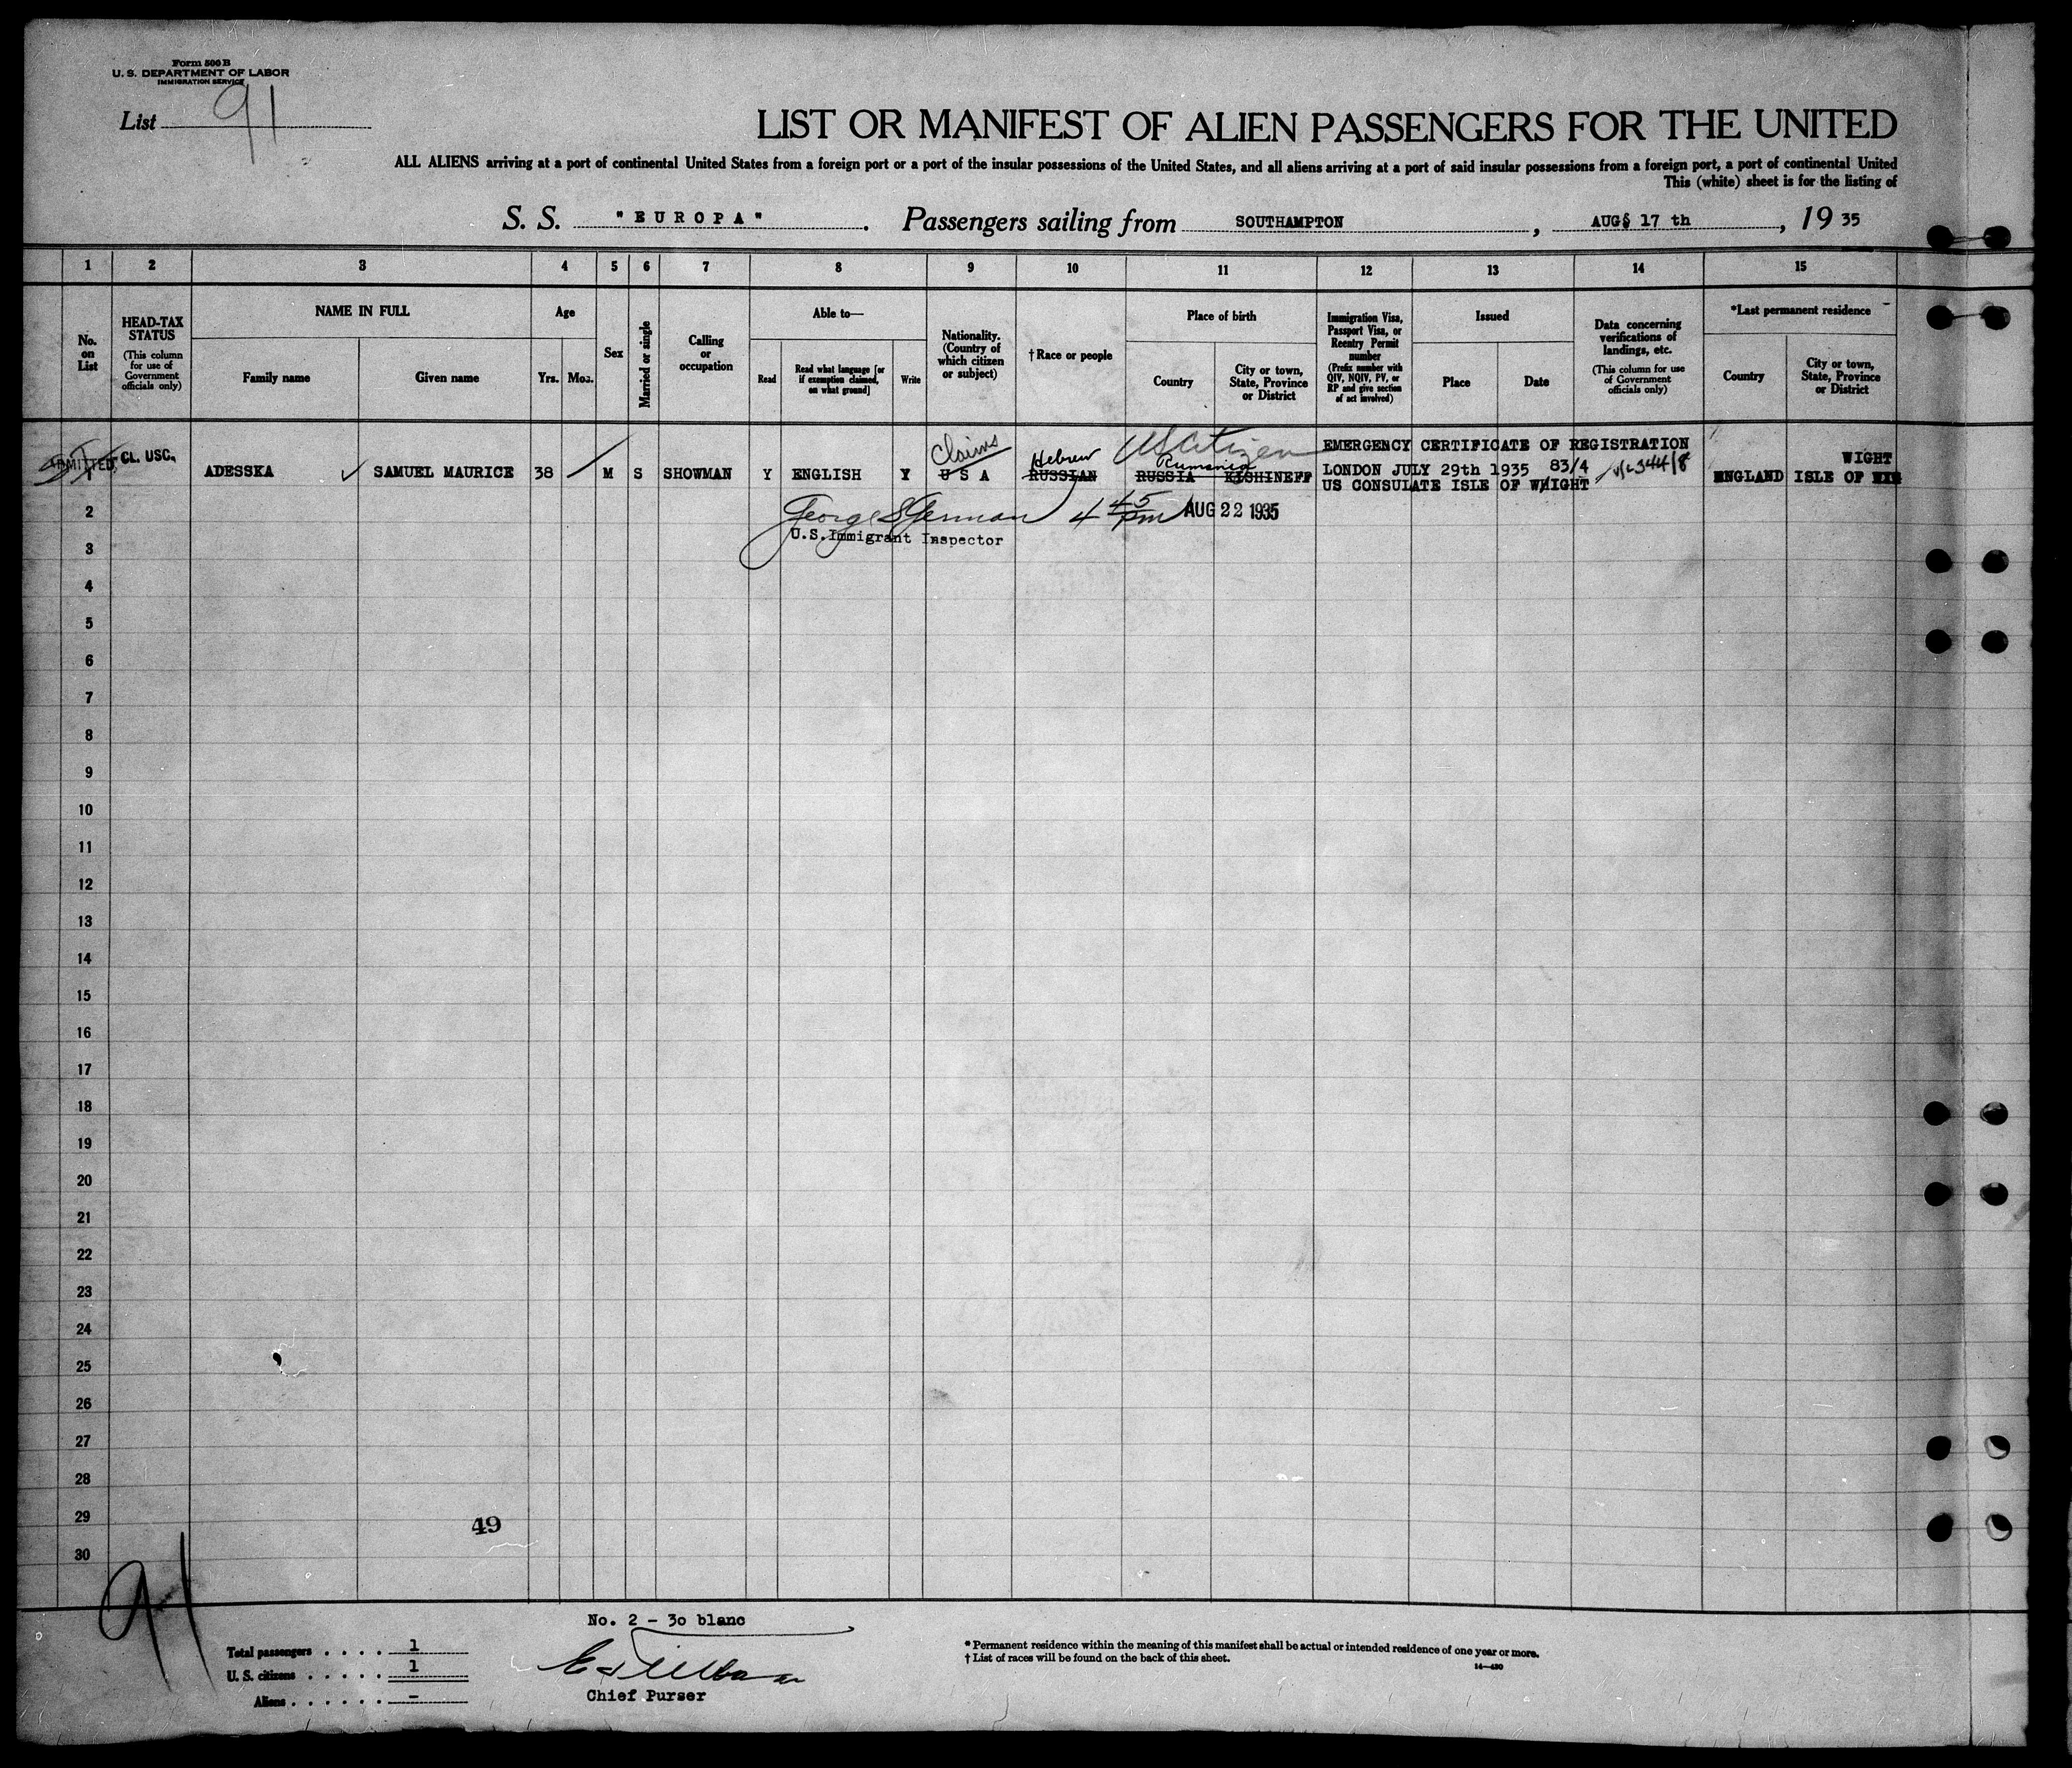 Form 500 B
U. S. DEPARTMENT OF LABOR
IMMIGRATION SERVICE
List 91
LIST OR MANIFEST OF ALIEN PASSENGERS FOR THE UNITED
ALL ALIENS arriving at a port of continental United States from a foreign port or a port of the insular possessions of the United States, and all aliens arriving at a port of said insular possessions from a foreign port, a port of continental United
This (white) sheet is for the listing of
S. S. "EUROPA". Passengers sailing from SOUTHAMPTON, AUG§ 17 th, 19 35
1 2 3 4 5 6 7 8 9 10 11 12 13 14 15
No. on List
HEAD-TAX STATUS
(This column for use of Government officials only)
NAME IN FULL
Family name
Given name
Age
Yrs. Mos.
Sex
Married or single
Calling or occupation
Able to—
Read
Read what language [or if exemption claimed, on what ground]
Write
Nationality. (Country of which citizen or subject)
†Race or people
Place of birth
Country
City or town, State, Province or District
Immigration Visa, Passport Visa, or Reentry Permit number
(Prefix number with QIV, NQIV, PV, or RP and give section of act involved)
Issued
Place
Date
Data concerning verifications of landings, etc.
(This column for use of Government officials only)
*Last permanent residence
Country
City or town, State, Province or District
Claims
US Citizen
EMERGENCY CERTIFICATE OF REGISTRATION
ADMITTED CL. USC.
Hebrew
Rumania
WIGHT
1 ADESSKA SAMUEL MAURICE 38 M S SHOWMAN Y ENGLISH Y U S A RUSSIAN RUSSIA KISHINEFF LONDON JULY 29th 1935 83/4 ENGLAND ISLE OF
US CONSULATE ISLE OF WHIGHT
2 George 4 45 pm AUG 22 1935
U.S.Immigrant Inspector
3
4
5
6
7
8
9
10
11
12
13
14
15
16
17
18
19
20
21
22
23
24
25
26
27
28
29
49
30
91
No. 2 - 30 blanc
Total passengers . . . . 1
U. S. citizens . . . . . 1
Aliens . . . . . . –
Chief Purser
* Permanent residence within the meaning of this manifest shall be actual or intended residence of one year or more.
† List of races will be found on the back of this sheet.
14—430